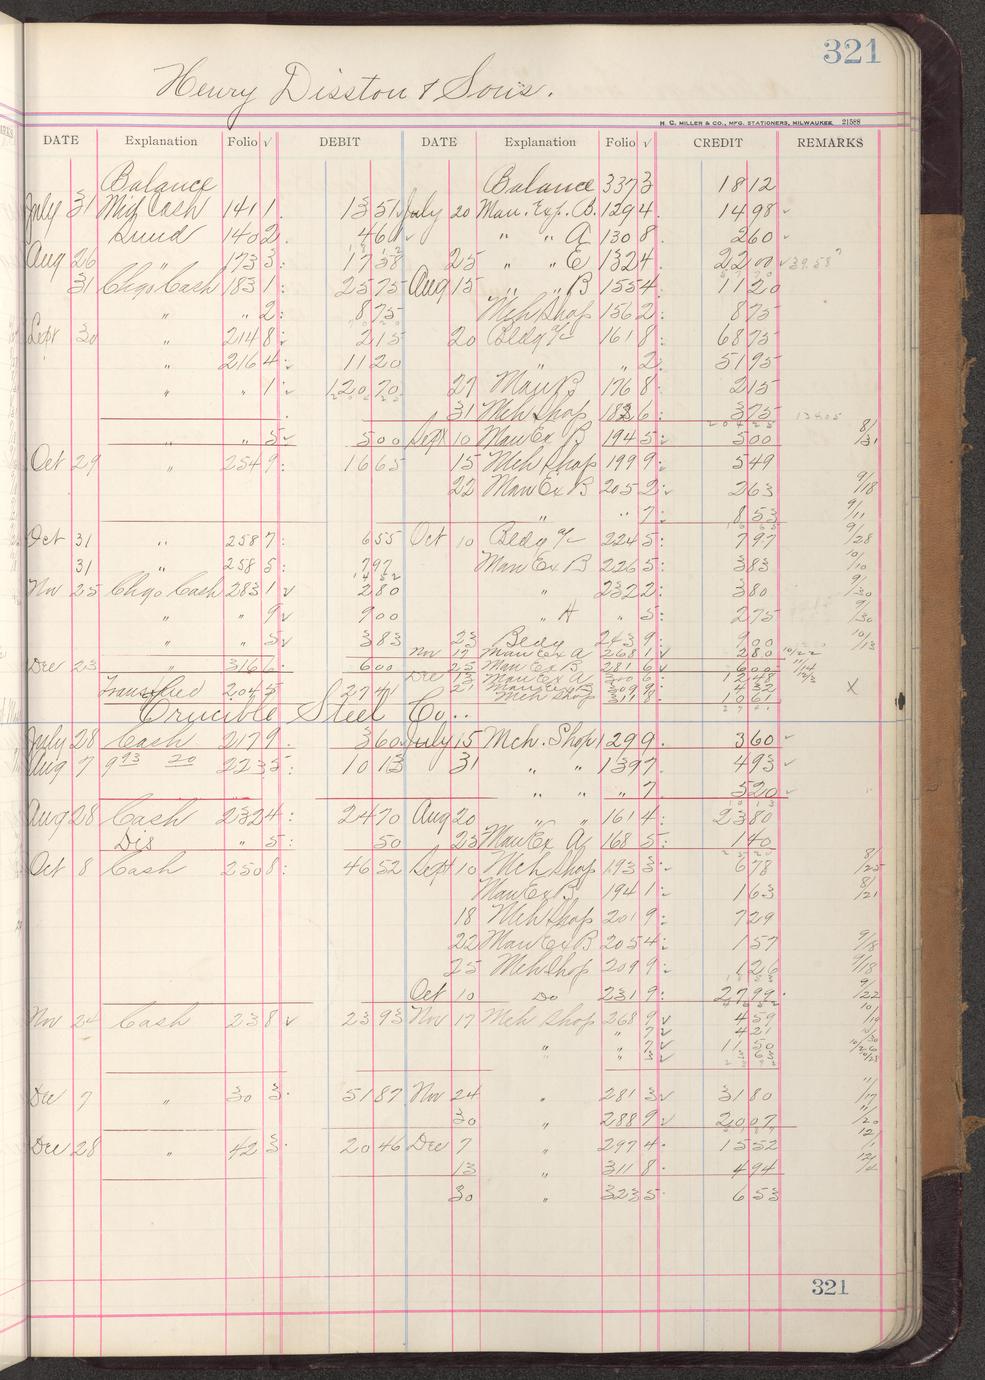 321
Henry Disston & Sons.
H. C. MILLER & CO., MFG. STATIONERS, MILWAUKEE 21588
DATE Explanation Folio √ DEBIT DATE Explanation Folio √ CREDIT REMARKS
Balance Balance 337 3 18 12
July 31 Cash 141 1 13 51 July 20 Man. Exp. B. 129 4 14 98
Sund 140 2 4 60 " " A 130 8 2 60
Aug 26 " 173 3 17 58 25 " " E 132 4 22 00
31 Chgo Cash 183 1 25 75 Aug 15 " " B 155 4 11 20
" " 2 8 75 Mch Shop 156 2 8 75
Sept 30 " 214 8 2 15 20 Bldg a/c 161 8 68 75
" 216 4 11 20 " 2 51 95
" " 1 120 70 27 Man B 176 8 2 15
31 Mch Shop 183 6 3 75
" " 5 5 00 Sept 10 Man Ex B 194 5 5 00 8/31
Oct 29 " 254 9 16 65 15 Mch Shop 199 9 5 49
22 Man Ex B 205 2 2 63 9/18
" " 7 8 53 9/11
Oct 31 " 258 7 6 55 Oct 10 Bldg a/c 224 5 7 97 9/28
31 " 258 5 7 97 Man Ex B 226 5 3 83 10/10
Nov 25 Chgo Cash 283 1 2 80 " 232 2 3 80 9/30
" " 9 9 00 " A " 5 2 75 9/30
" " 5 3 83 23 Bldg 243 9 9 00 10/13
Nov 17 Man Ex A 268 1 2 80 10/22
Dec 23 " 316 6 6 00 25 Man Ex B 281 6 6 00 11/14
Dec 13 Man Ex A 300 6 12 48
Transfied 204 5 27 41 21 Man Ex B 309 9 4 32 X
Mch Shop 317 8 10 61
Crucible Steel Co..
July 28 Cash 217 9 3 60 July 15 Mch. Shop 129 9 3 60
Aug 7 223 5 10 13 31 " " 139 7 4 93
" " " 7 5 20
Aug 28 Cash 232 4 24 70 Aug 20 " " 161 4 23 80
Dis " 5 50 25 Man Ex A 168 5 1 40
Oct 8 Cash 250 8 46 52 Sept 10 Mch Shop 193 3 6 78 8/25
Man Ex B 194 1 1 63 8/21
18 Mch Shop 201 9 7 29
22 Man Ex B 205 4 1 57 9/18
25 Mch Shop 209 9 1 26 9/18
Oct 10 Do 231 9 27 99 9/22
Nov 24 Cash 23 8 23 93 Nov 17 Mch Shop 268 9 4 59
" " 7 4 21
" " 7 11 50
" " 3 3 63
Dec 7 " 30 3 51 87 Nov 24 " 281 3 31 80 11/17
30 " 288 9 20 07 11/20
Dec 28 " 42 3 20 46 Dec 7 " 297 4 15 52
13 " 311 8 4 94
30 " 323 5 6 53
321